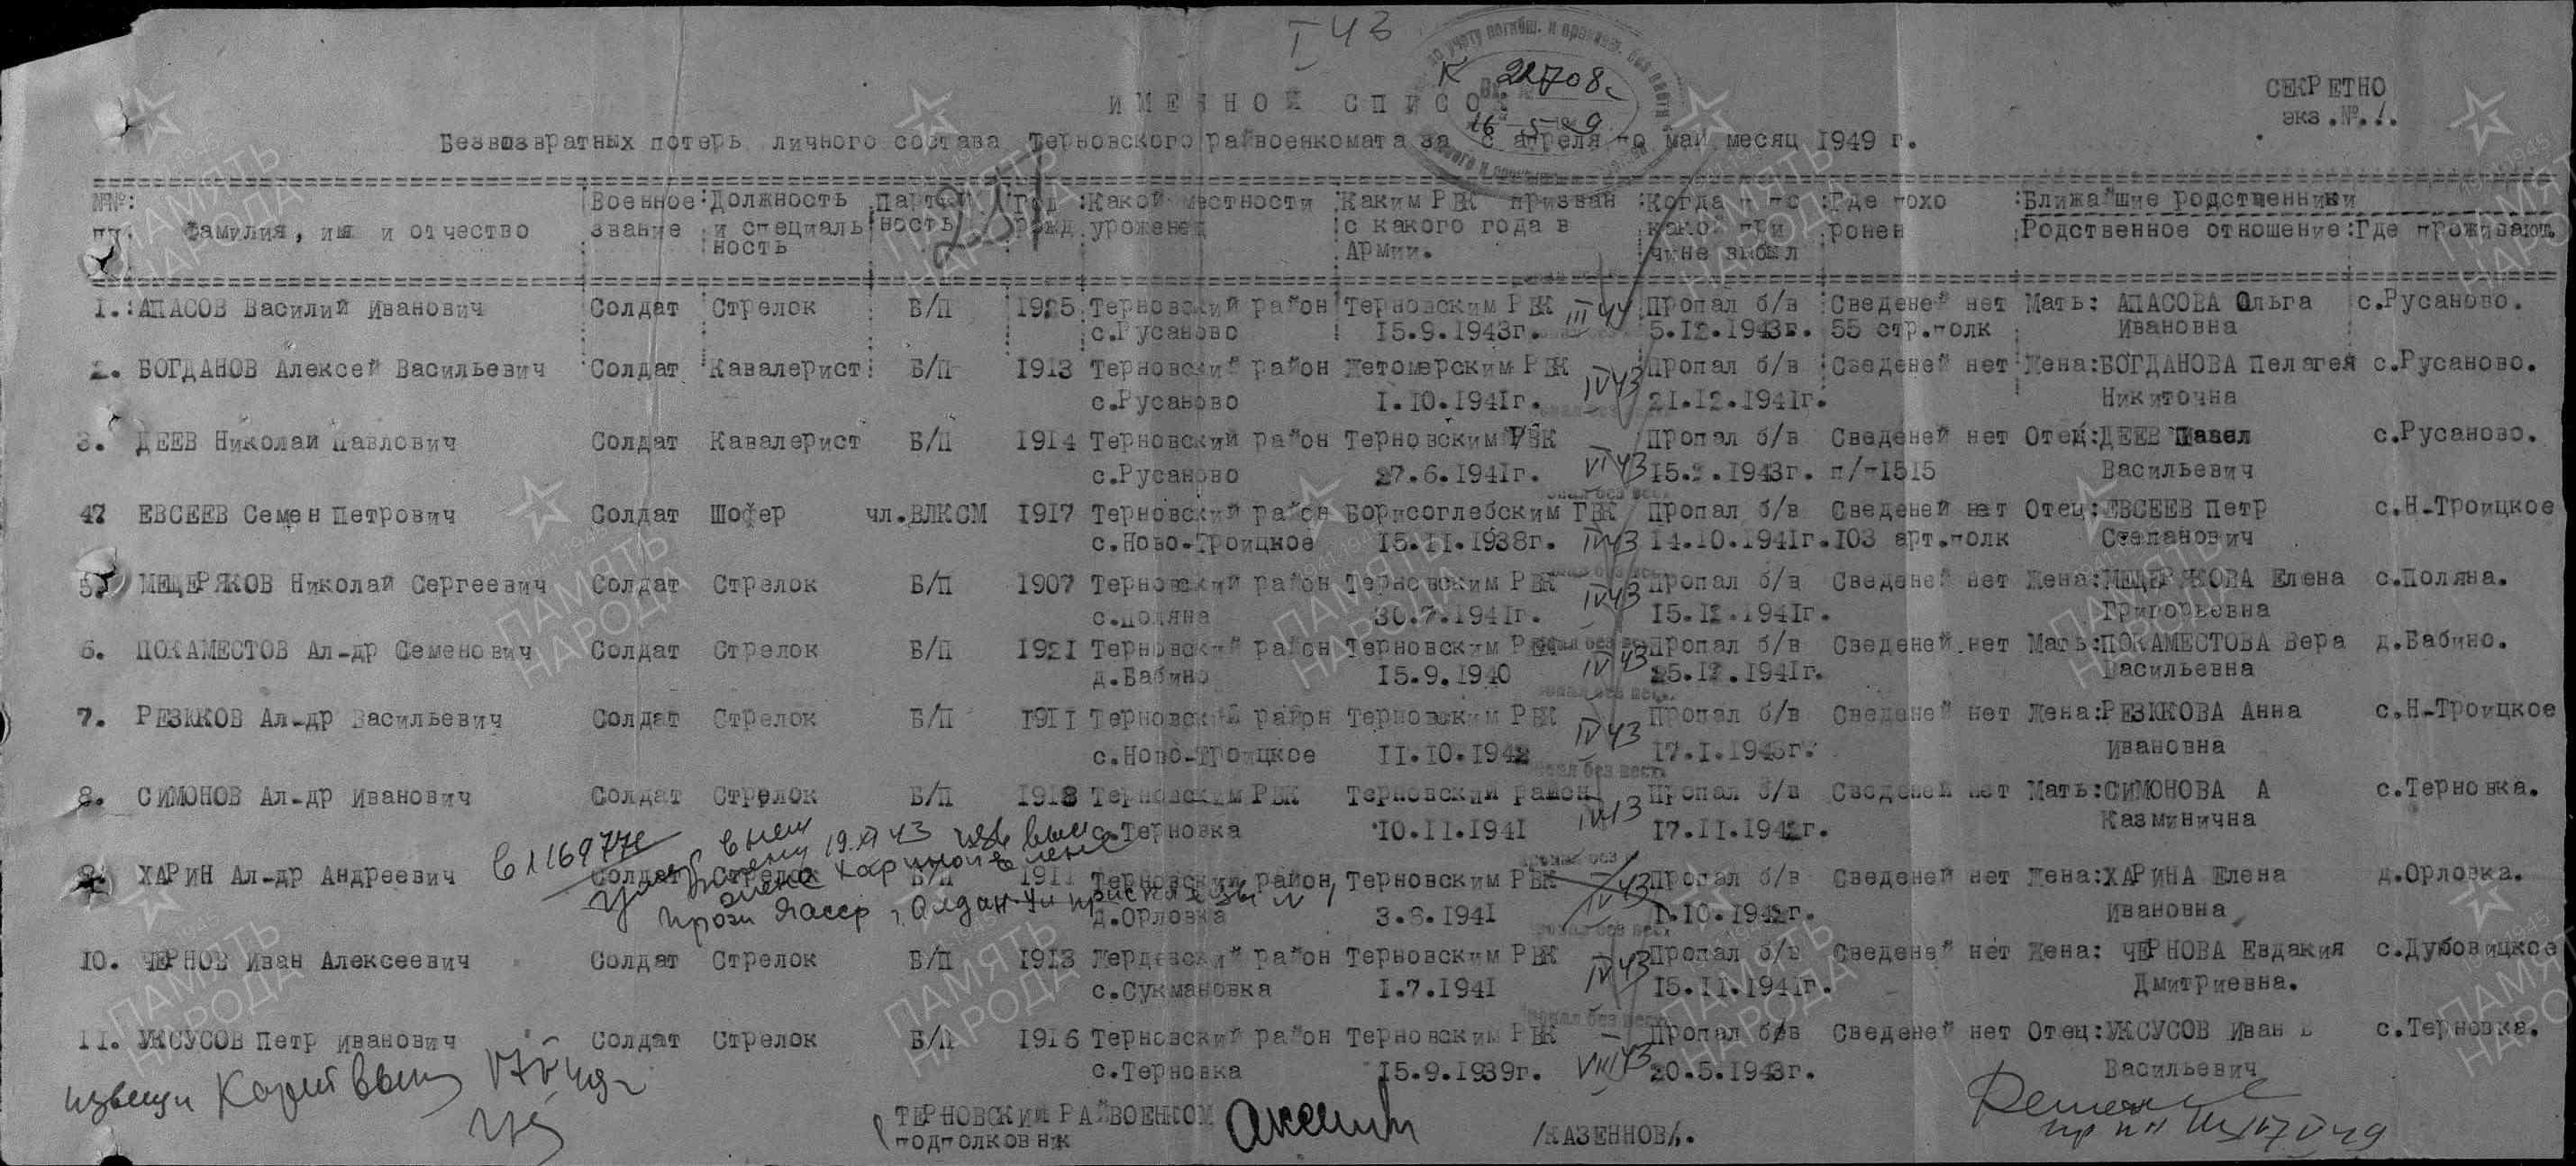 I 43
К 22708с
16 5 1949
СЕКРЕТНО
экз.№.1.
ИМЕННОЙ СПИСОК
Безвозвратных потерь личного состава Терновского райвоенкомата за с апреля по май месяц 1949 г.
№№: Военное: Должность Партий Год :Какой местности :Каким РВК призван :Когда и по :Где похо :Ближайшие родственники
пп. Фамилия, имя и отчество звание и специаль ность рожд уроженец с какого года в какой при ронен Родственное отношение:Где проживают
ность Армии. чине выбыл
251
1.:АПАСОВ Василий Иванович Солдат Стрелок Б/П 1925 Терновский район Терновским РВК III 44 Пропал б/в Сведеней нет Мать: АПАСОВА Ольга с.Русаново.
с.Русаново 15.9.1943г. 5.12.1943г. 55 стр.полк Ивановна
2. БОГДАНОВ Алексей Васильевич Солдат Кавалерист Б/П 1913 Терновский район Жетомерским РВК IV 43 Пропал б/в Сведеней нет Жена:БОГДАНОВА Пелагея с.Русаново.
с.Русаново 1.10.1941г. 21.12.1941г. Никиточна
3. ДЕЕВ Николай Павлович Солдат Кавалерист Б/П 1914 Терновский район Терновским РВК Пропал б/в Сведеней нет Отец:ДЕЕВ Павел с.Русаново.
с.Русаново 27.6.1941г. VI 43 15.2.1943г. п/-1515 Васильевич
47 ЕВСЕЕВ Семен Петрович Солдат Шофер чл.ВЛКСМ 1917 Терновский район Борисоглебским ГВК Пропал б/в Сведеней нет Отец:ЕВСЕЕВ Петр с.Н-Троицкое
с.Ново-Троицкое 15.11.1938г. IV 43 14.10.1941г.103 арт.полк Степанович
5. МЕЩЕРЯКОВ Николай Сергеевич Солдат Стрелок Б/П 1907 Терновский район Терновским РВК Пропал б/в Сведеней нет Жена:МЕЩЕРЯКОВА Елена с.Поляна.
с.Поляна 30.7.1941г. IV 43 15.12.1941г. Григорьевна
6. ПОКАМЕСТОВ Ал-др Семенович Солдат Стрелок Б/П 1921 Терновский район Терновским РВК Пропал б/в Сведеней нет Мать:ПОКАМЕСТОВА Вера д.Бабино.
д.Бабино 15.9.1940 IV 43 25.12.1941г. Васильевна
7. РЕЗЮКОВ Ал-др Васильевич Солдат Стрелок Б/П 1911 Терновский район Терновским РВК Пропал б/в Сведеней нет Жена:РЕЗЮКОВА Анна с.Н-Троицкое
с.Ново-Троицкое 11.10.1942 IV 43 17.1.1943г. Ивановна
8. СИМОНОВ Ал-др Иванович Солдат Стрелок Б/П 1918 Терновским РВК Терновский район Пропал б/в Сведеней нет Мать:СИМОНОВА А с.Терновка.
с.Терновка 10.11.1941 17.11.1942г. Казминична
в 1169774
19.XI 43
9. ХАРИН Ал-др Андреевич Солдат Стрелок Б/П 1911 Терновский район Терновским РВК IV 43 Пропал б/в Сведеней нет Жена:ХАРИНА Елена д.Орловка.
жена Харина Елена
д.Орловка 3.8.1941 1.10.1942г. Ивановна
10. ЧЕРНОВ Иван Алексеевич Солдат Стрелок Б/П 1913 Жердевский район Терновским РВК IV 43 Пропал б/в Сведеней нет Жена: ЧЕРНОВА Евдакия с.Дубовицкое
с.Сукмановка 1.7.1941 15.11.1941г. Дмитриевна.
11. УКСУСОВ Петр Иванович Солдат Стрелок Б/П 1916 Терновский район Терновским РВК Пропал б/в Сведеней нет Отец:УКСУСОВ Иван с.Терновка.
с.Терновка 15.9.1939г. VIII 43 20.5.1943г. Васильевич
ТЕРНОВСКИЙ РАЙВОЕНКОМ
подполковник /КАЗЕННОВ/.
17 V 49
ПАМЯТЬ НАРОДА